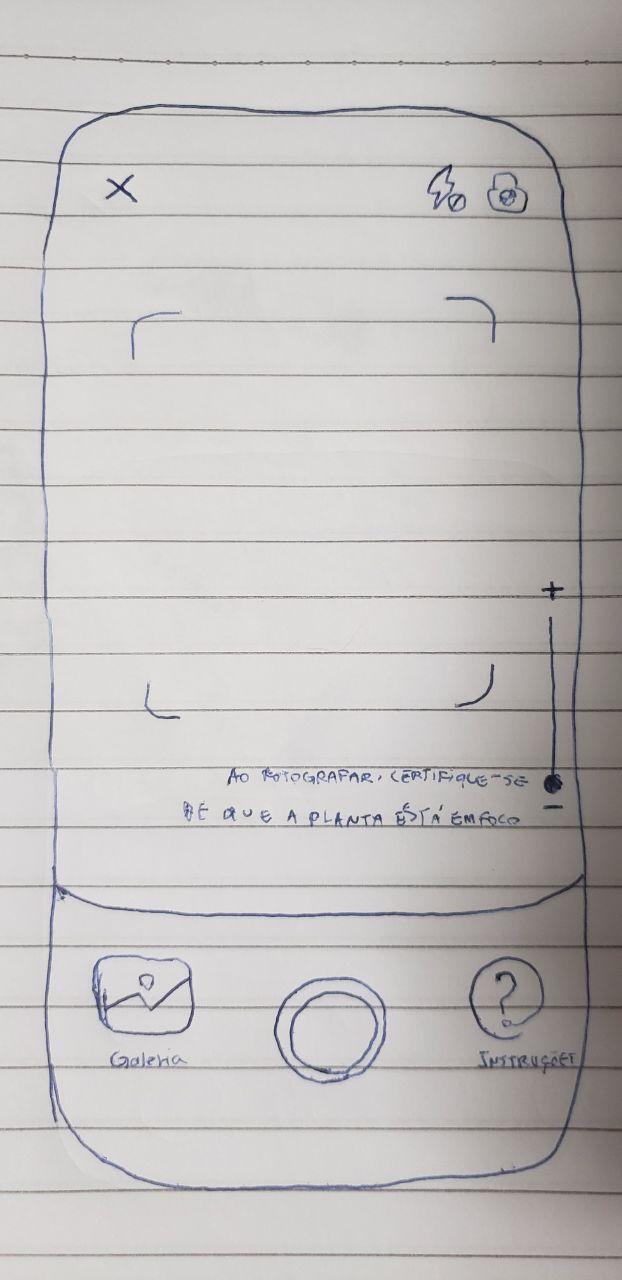 AO FOTOGRAFAR, CERTIFIQUE-SE
DE QUE A PLANTA ESTÁ EM FOCO
Galeria
INSTRUÇÕES